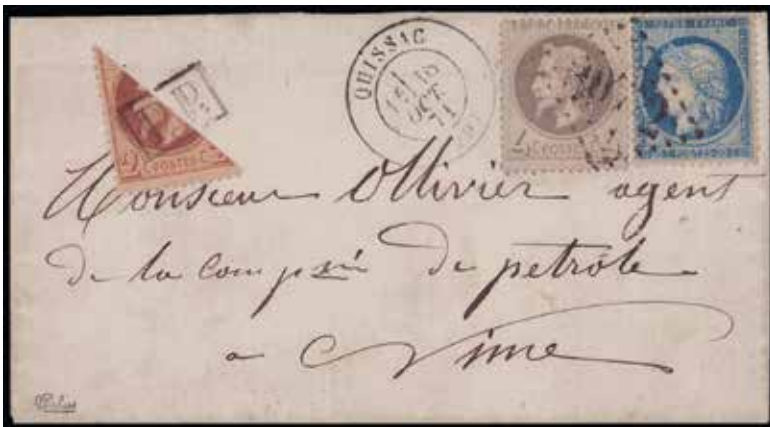 QUISSAC
18
OCT
71
PD
2 C POSTES C
4 C POSTES
Monsieur Ollivier agent
de la compnie de petrole
a Nime